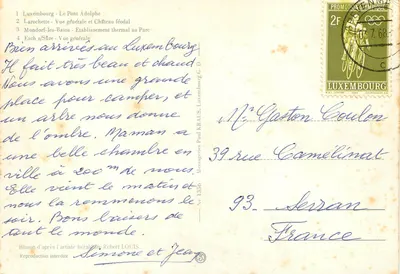 1 Luxembourg - Le Pont Adolphe
2 Larochette - Vue générale et Château féodal
3 Mondorf-les-Bains - Etablissement thermal au Parc
4 Esch s/Sûre - Vue générale
Bien arrivés au Luxembourg.
Il fait très beau et chaud
Nous avons une grande
place pour camper, et
un arbre nous donne
de l'ombre. Maman a
une belle chambre en
ville à 200m de nous.
Elle vient le matin et
nous la ramenons le
soir. Bons baisers de
tout le monde.
Simone et Jean
Reproduction interdite
Messageries Paul KRAUS, Luxembourg
2F
LUXEMBOURG
7.68
Mr Gaston Coulon
39 rue Camélinat
93. Sevran
France